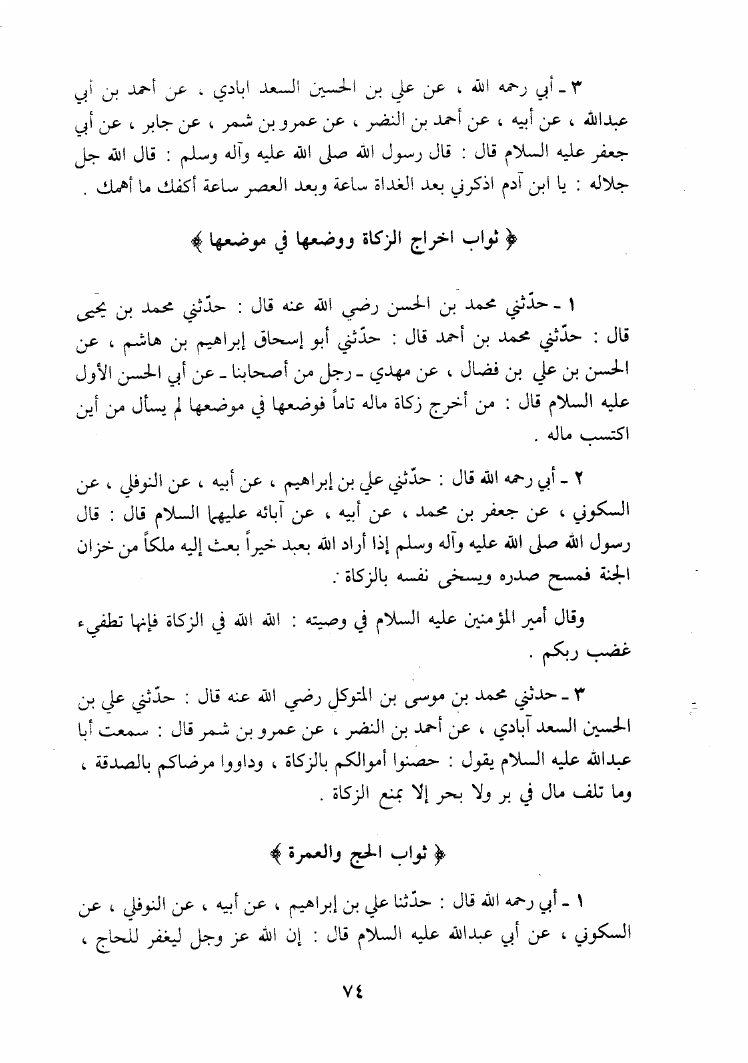 ٣ ـ أبي رحمه الله ، عن علي بن الحسين السعد ابادي ، عن أحمد بن أبي
عبدالله ، عن أبيه ، عن أحمد بن النضر ، عن عمرو بن شمر ، عن جابر ، عن أبي
جعفر عليه السلام قال : قال رسول الله صلى الله عليه وآله وسلم : قال الله جل
جلاله : يا ابن آدم اذكرني بعد الغداة ساعة وبعد العصر ساعة أكفك ما أهمك .
﴿ ثواب اخراج الزكاة ووضعها في موضعها ﴾
١ ـ حدّثني محمد بن الحسن رضي الله عنه قال : حدّثني محمد بن يحيى
قال : حدّثني محمد بن أحمد قال : حدّثني أبو إسحاق إبراهيم بن هاشم ، عن
الحسن بن علي بن فضال ، عن مهدي ـ رجل من أصحابنا ـ عن أبي الحسن الأول
عليه السلام قال : من أخرج زكاة ماله تاماً فوضعها في موضعها لم يسأل من أين
اكتسب ماله .
٢ ـ أبي رحمه الله قال : حدّثني علي بن إبراهيم ، عن أبيه ، عن النوفلي ، عن
السكوني ، عن جعفر بن محمد ، عن أبيه ، عن آبائه عليهما السلام قال : قال
رسول الله صلى الله عليه وآله وسلم إذا أراد الله بعبد خيراً بعث إليه ملكاً من خزان
الجنة فمسح صدره ويسخى نفسه بالزكاة .
وقال أمير المؤمنين عليه السلام في وصيته : الله الله في الزكاة فإنها تطفيء
غضب ربكم .
٣ ـ حدثني محمد بن موسى بن المتوكل رضي الله عنه قال : حدّثني علي بن
الحسين السعد آبادي ، عن أحمد بن النضر ، عن عمرو بن شمر قال : سمعت أبا
عبدالله عليه السلام يقول : حصنوا أموالكم بالزكاة ، وداووا مرضاكم بالصدقة ،
وما تلف مال في بر ولا بحر إلا بمنع الزكاة .
﴿ ثواب الحج والعمرة ﴾
١ ـ أبي رحمه الله قال : حدّثنا علي بن إبراهيم ، عن أبيه ، عن النوفلي ، عن
السكوني ، عن أبي عبدالله عليه السلام قال : إن الله عز وجل ليغفر للحاج ،
٧٤